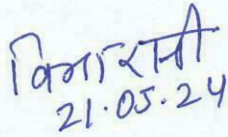 विभा रानी
21.05.24